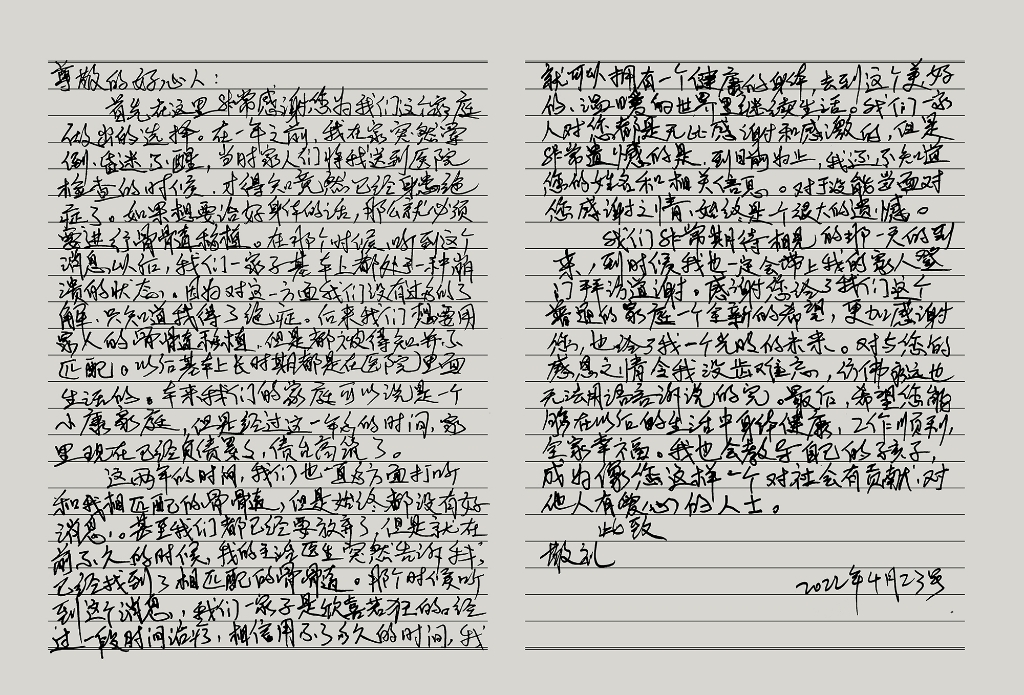 尊敬的好心人：
首先在这里非常感谢您为我们这个家庭
做出的选择。在一年之前，我在家突然晕
倒，昏迷不醒，当时家人们将我送到医院
检查的时候，才得知竟然已经身患绝
症了。如果想要治好身体的话，那么就必须
要进行骨骨髓移植。在那个时候，听到这个
消息以后，我们一家子基本上都处于一种崩
溃的状态。因为对这一方面我们没有过多的了
解，只知道我得了绝症。后来我们想要用
家人的骨骨髓移植，但是都被得知并不
匹配。以后基本上长时期都是在医院里面
生活的。本来我们的家庭可以说是一个
小康家庭，但是经过这一年多的时间，家
里现在已经负债累累，债台高筑了。
这两年的时间，我们也一直多方面打听
和我相匹配的骨骨髓，但是始终都没有好
消息。甚至我们都已经要放弃了，但是就在
前不久的时候，我的主治医生突然告诉我，
已经找到了相匹配的骨骨髓。那个时候听
到这个消息，我们一家子是欣喜若狂的。经
过一段时间治疗，相信用不了多久的时间，我
就可以拥有一个健康的身体，去到这个美好
的、温暖的世界里继续生活。我们一家
人对您都是无比感谢和感激的，但是
非常遗憾的是，到目前为止，我还不知道
您的姓名和相关信息。对于没能当面对
您感谢之情，始终是一个很大的遗憾。
我们非常期待相见的那一天的到
来，到时候我也一定会带上我的家人登
门拜访道谢。感谢您给了我们这个
普通的家庭一个全新的希望，更加感谢
您，也给了我一个光明的未来。对与您的
感恩之情令我没齿难忘，仿佛永远也
无法用语言诉说的完。最后，希望您能
够在以后的生活中身体健康，工作顺利，
全家幸福。我也会教导自己的孩子，
成为像您这样一个对社会有贡献，对
他人有爱心的人士。
此致
敬礼
2022年4月23号